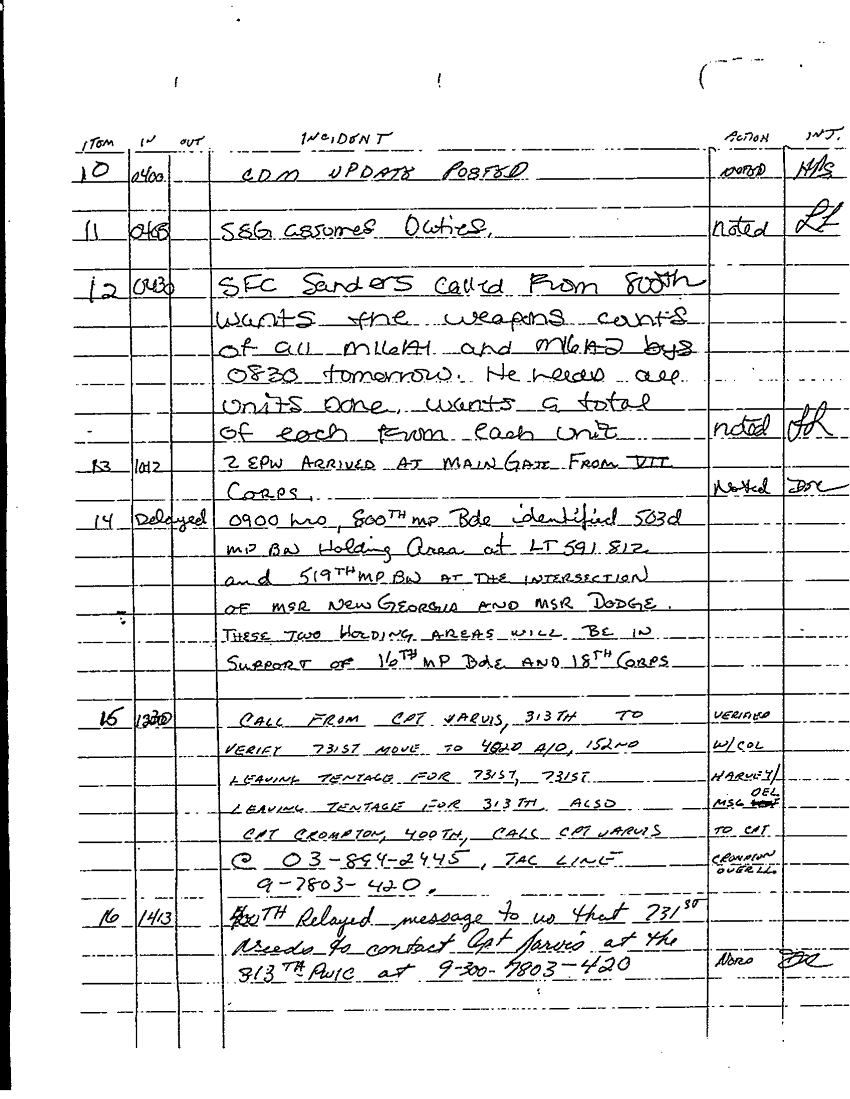 ITEM IN OUT INCIDENT ACTION INT.
10 0400 CDM UPDATE POSTED
11 0405 S&G assumes Duties. noted
12 0430 SFC Sanders called From 800th
wants the weapons counts
of all M16A1 and M16A2 bys
0830 tomorrow. He needs all
units Done, wants a total
of each from each unit noted
13 1012 2 EPW ARRIVED AT MAIN GATE FROM VII
CORPS. Noted
14 Delayed 0900 hrs, 800TH MP Bde identified 503d
MP BN Holding Area at LT 591 812
and 519TH MP BN AT THE INTERSECTION
OF MSR NEW GEORGIA AND MSR DODGE.
THESE TWO HOLDING AREAS WILL BE IN
SUPPORT OF 16TH MP Bde AND 18TH CORPS
15 1330 CALL FROM CPT JARVIS, 313TH TO VERIFIED
VERIFY 731ST MOVE TO 402D A/O, 152ND W/COL
LEAVING TENTAGE FOR 731ST, 731ST HARVEY/
LEAVING TENTAGE FOR 313TH ALSO MSG DEL
CPT CROMPTON, 400TH, CALL CPT JARVIS TO CPT
@ 03-894-2445, TAC LINE CROMPTON
9-7803-420. OVER LL
16 1413 400TH Relayed message to us that 731st
needs to contact Cpt Jarvis at the
313TH PWIC at 9-300-7803-420